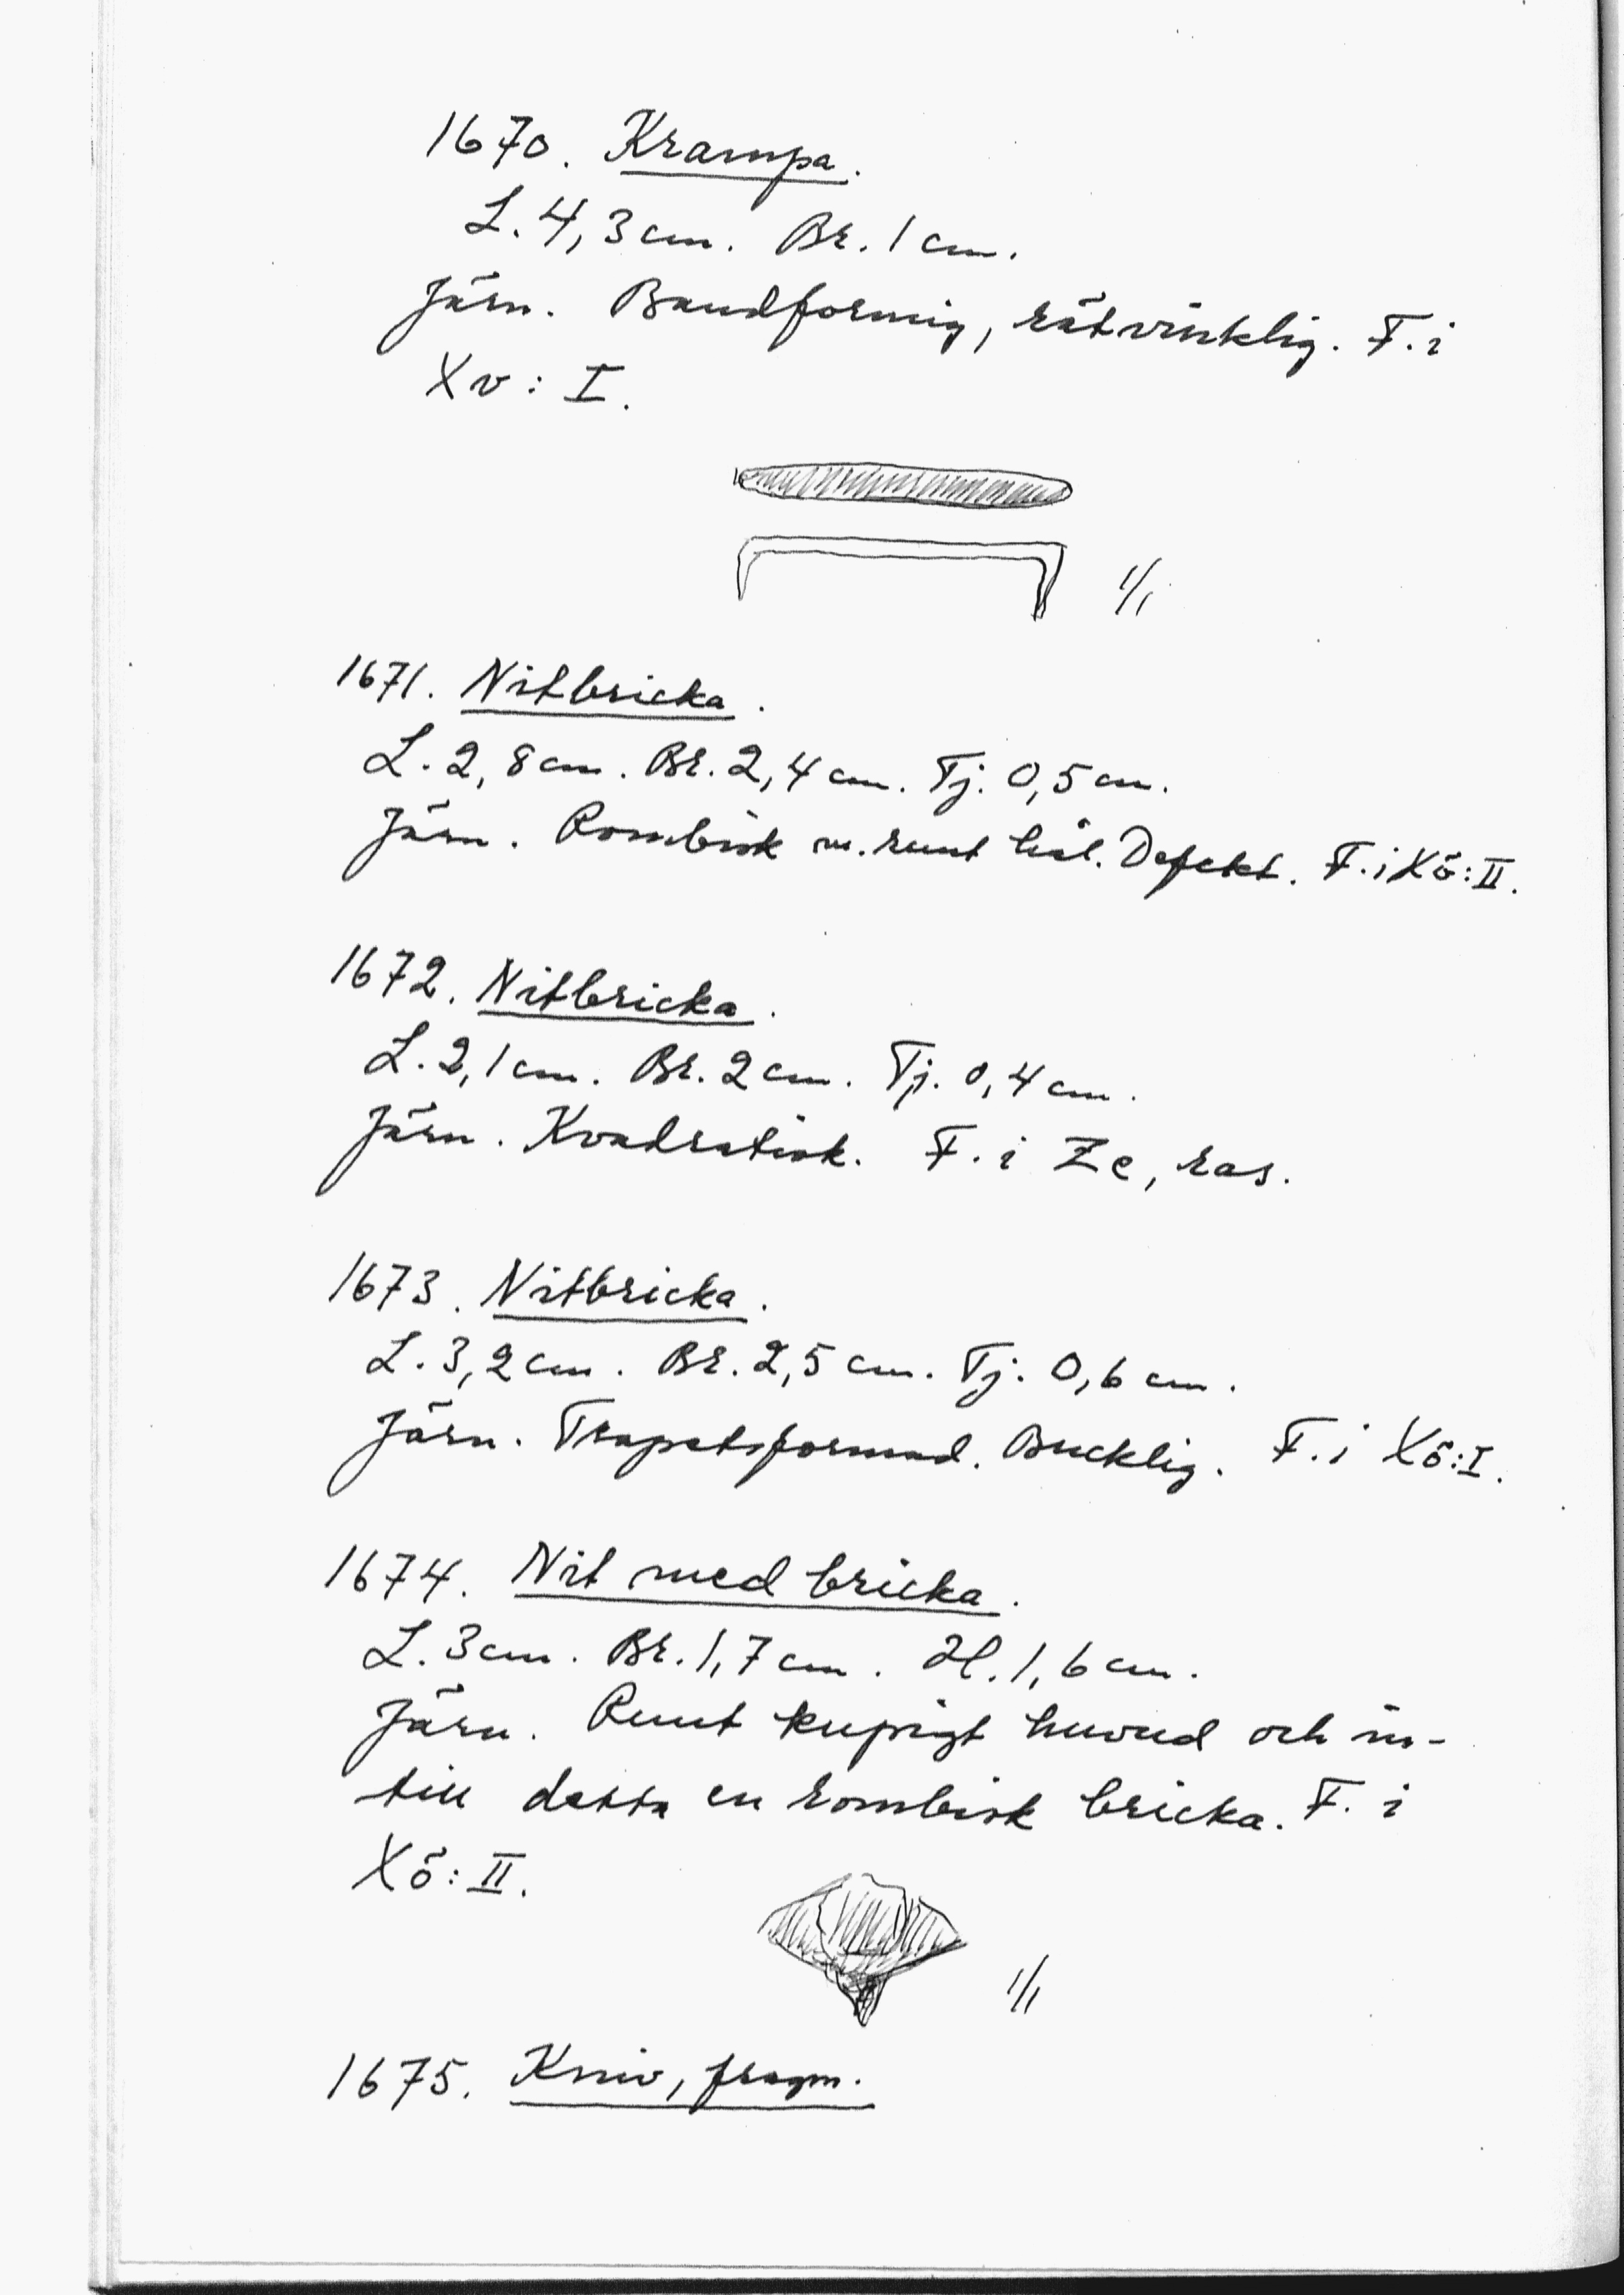 1670. Krampa.
L. 4,3 cm. Br. 1 cm.
Järn. Bandformig, rätvinklig. F. i
Xv: I.
1/1
1671. Nitbricka.
L. 2,8 cm. Br. 2,4 cm. Tj. 0,5 cm.
Järn. Rombisk m. runt hål. Defekt. F. i Xö: II.
1672. Nitbricka.
L. 2,1 cm. Br. 2 cm. Tj. 0,4 cm.
Järn. Kvadratisk. F. i Ze, ras.
1673. Nitbricka.
L. 3,2 cm. Br. 2,5 cm. Tj. 0,6 cm.
Järn. Trapetsformad. Bucklig. F. i Xö: I.
1674. Nit med bricka.
L. 3 cm. Br. 1,7 cm. H. 1,6 cm.
Järn. Runt kupigt huvud och in-
till detta en rombisk bricka. F. i
Xö: II.
1/1
1675. Kniv, fragm.